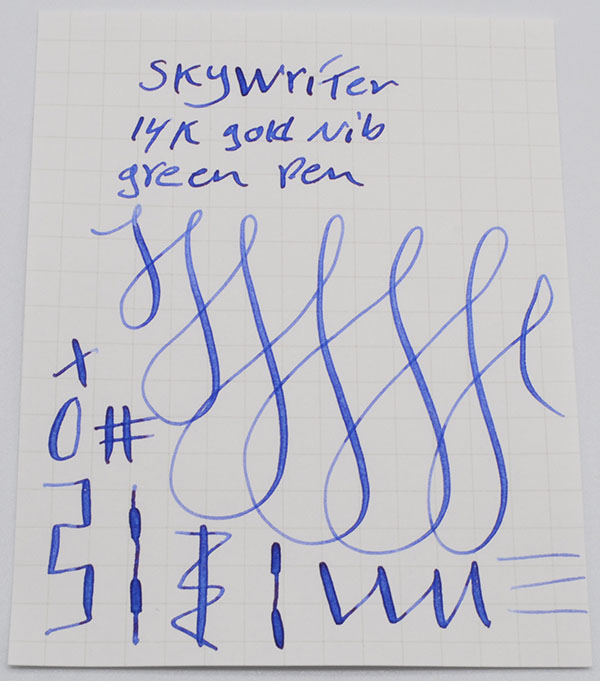 SKyWriTer
14K gold Nib
green Pen
x
0 #